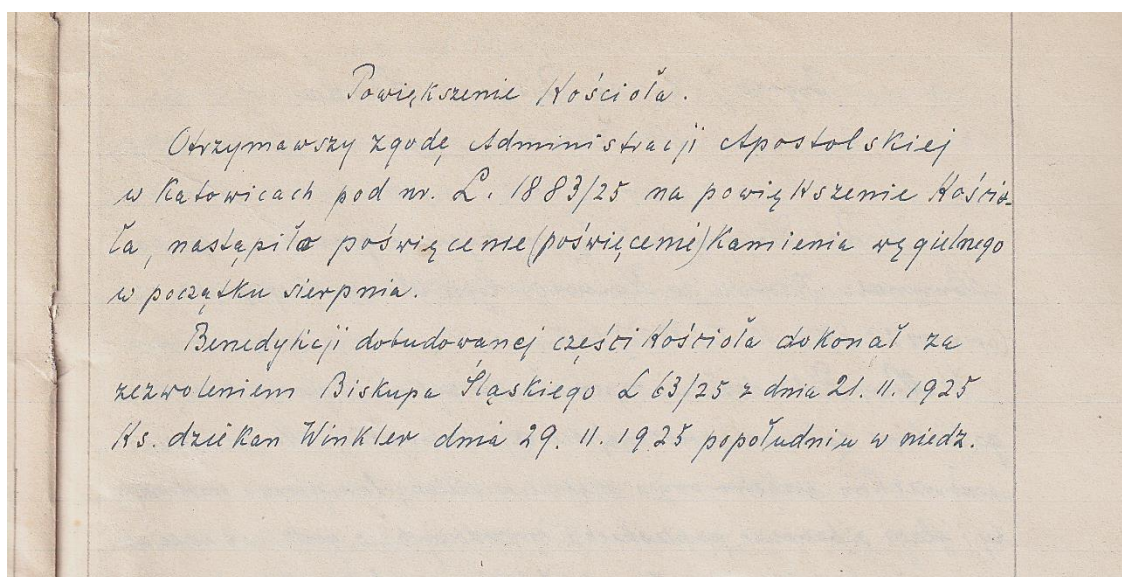 Powiększenie Kościoła.
Otrzymawszy zgodę Administracji Apostolskiej
w Katowicach pod nr. L. 1883/25 na powiększenie Kościo-
ła, nastąpiło poświęcenie (poświęcenie) Kamienia węgielnego
w początku sierpnia.
Benedykcji dobudowanej części Kościoła dokonał za
zezwoleniem Biskupa Śląskiego L 63/25 z dnia 21. 11. 1925
Ks. dziekan Winkler dnia 29. 11. 1925 popołudniu w niedz.